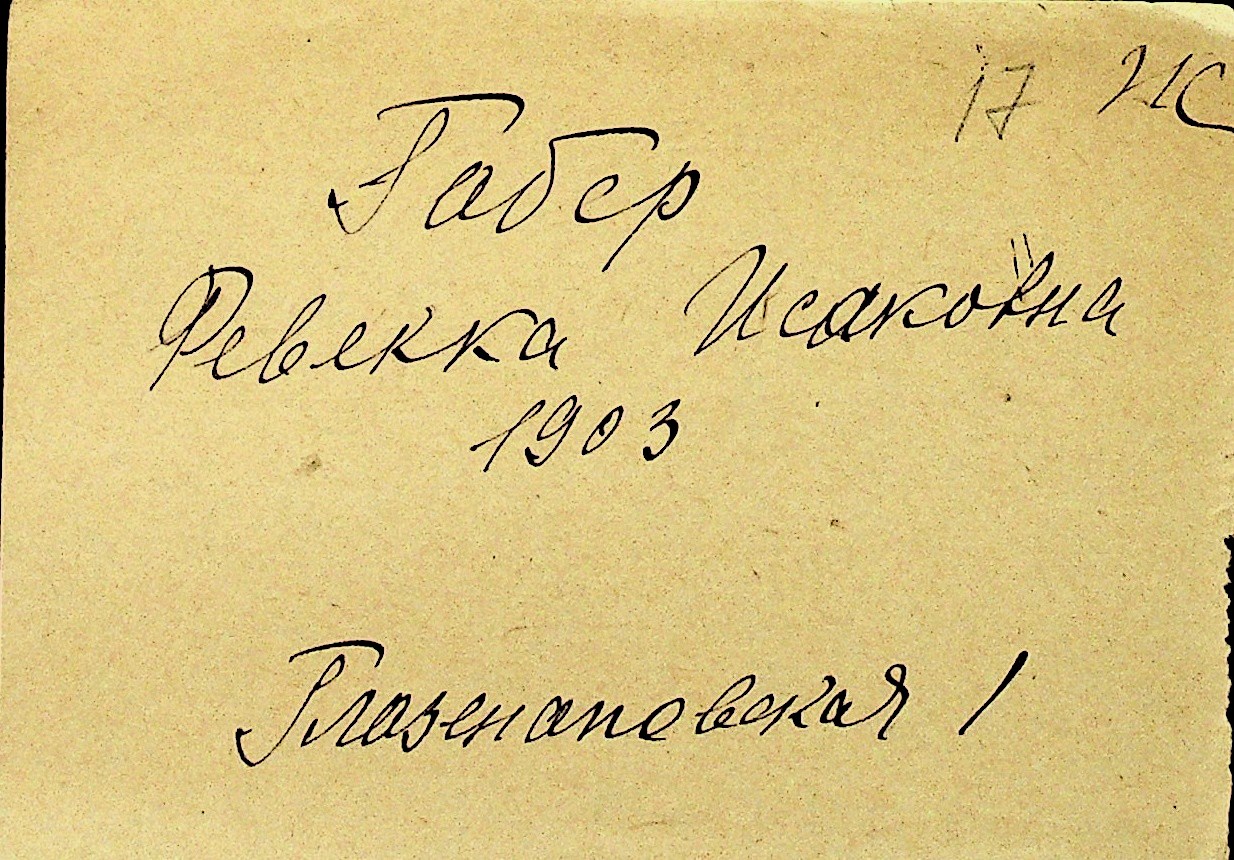 17 Ж
Габер
Ревекка Исаковна
1903
Глазенаповская 1